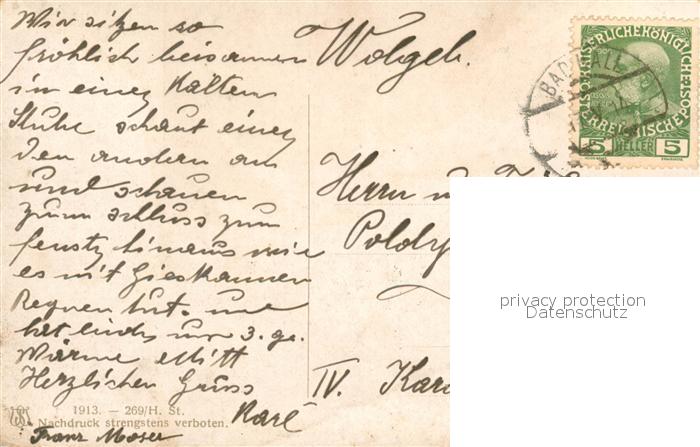 Wir sitzen so
fröhlich beisamen
in einer Kalten
Stube schaut einer
den andern an
und schauen
zum schluss zum
fenster hinaus wie
es mit Gieskannen
Regnen tut. und
hat nur 3. gr.
Wärme Mitt
Herzlichen Gruss
Karl
Franz Moser
1913. — 269/H. St.
Nachdruck strengstens verboten.
Wolgeb.
Herrn u
IV.
BAD HALL
KAISERLICHEKÖNIGLICHE
ÖSTERREICHISCHE
5 HELLER 5
privacy protection
Datenschutz